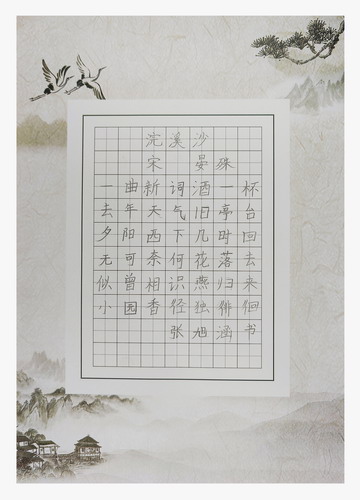 浣溪沙
宋 晏殊
一曲新词酒一杯
去年天气旧亭台
夕阳西下几时回
无可奈何花落去
似曾相识燕归来
小园香径独徘徊
张旭涵书